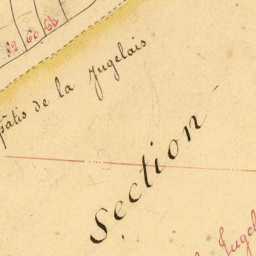 82 60 68
pâtis de la Jugelais
Section
Jugel